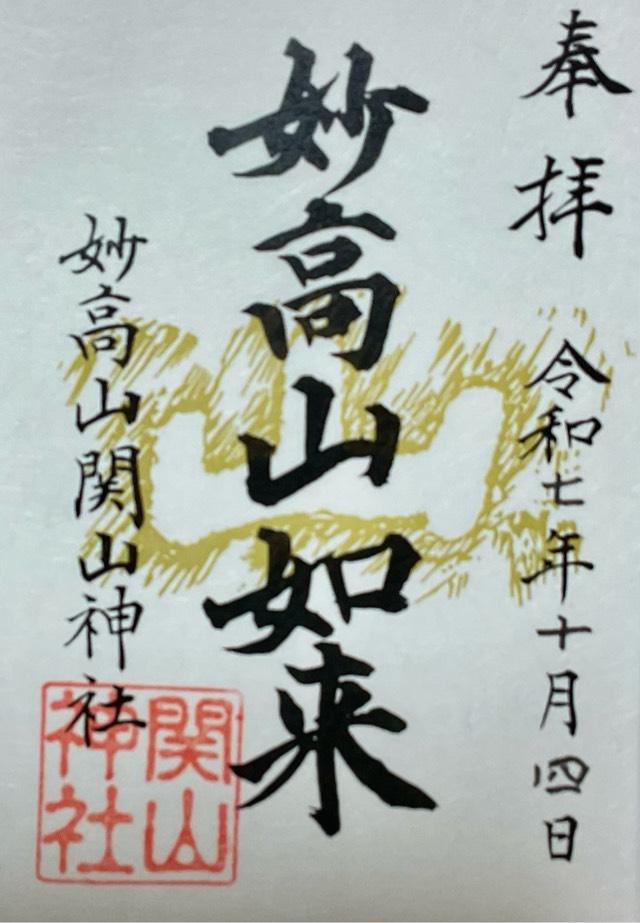 奉拝
令和七年十月四日
妙高山如来
妙高山関山神社
関山
神社